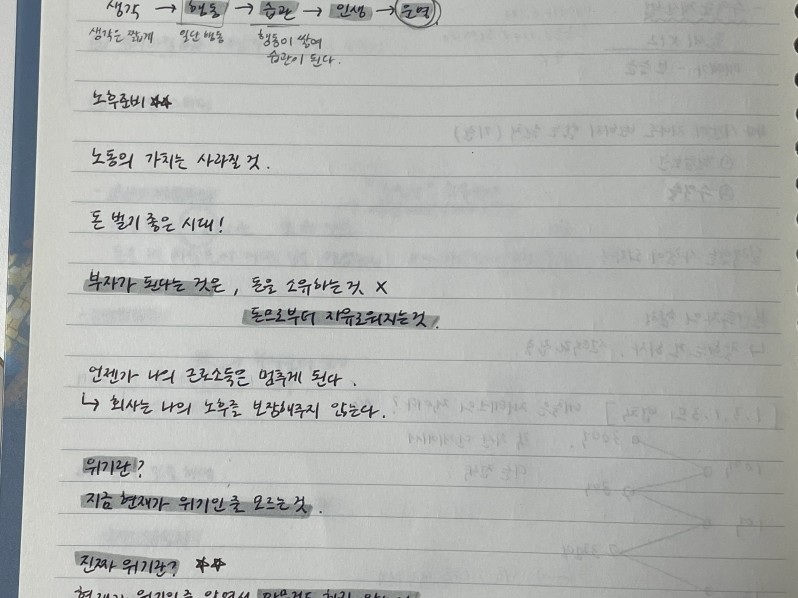 생각 → 행동 → 습관 → 인생 → 운명
생각은 짧게 일단 행동 행동이 쌓여
습관이 된다.
노후준비 ☆☆
노동의 가치는 사라질 것.
돈 벌기 좋은 시대!
부자가 된다는 것은, 돈을 소유하는 것 X
돈으로부터 자유로워지는 것!
언젠가 나의 근로소득은 멈추게 된다.
↳ 회사는 나의 노후를 보장해주지 않는다.
위기란?
지금 현재가 위기인 줄 모르는 것.
진짜 위기란? ☆☆
현재가 위기인 줄 알면서